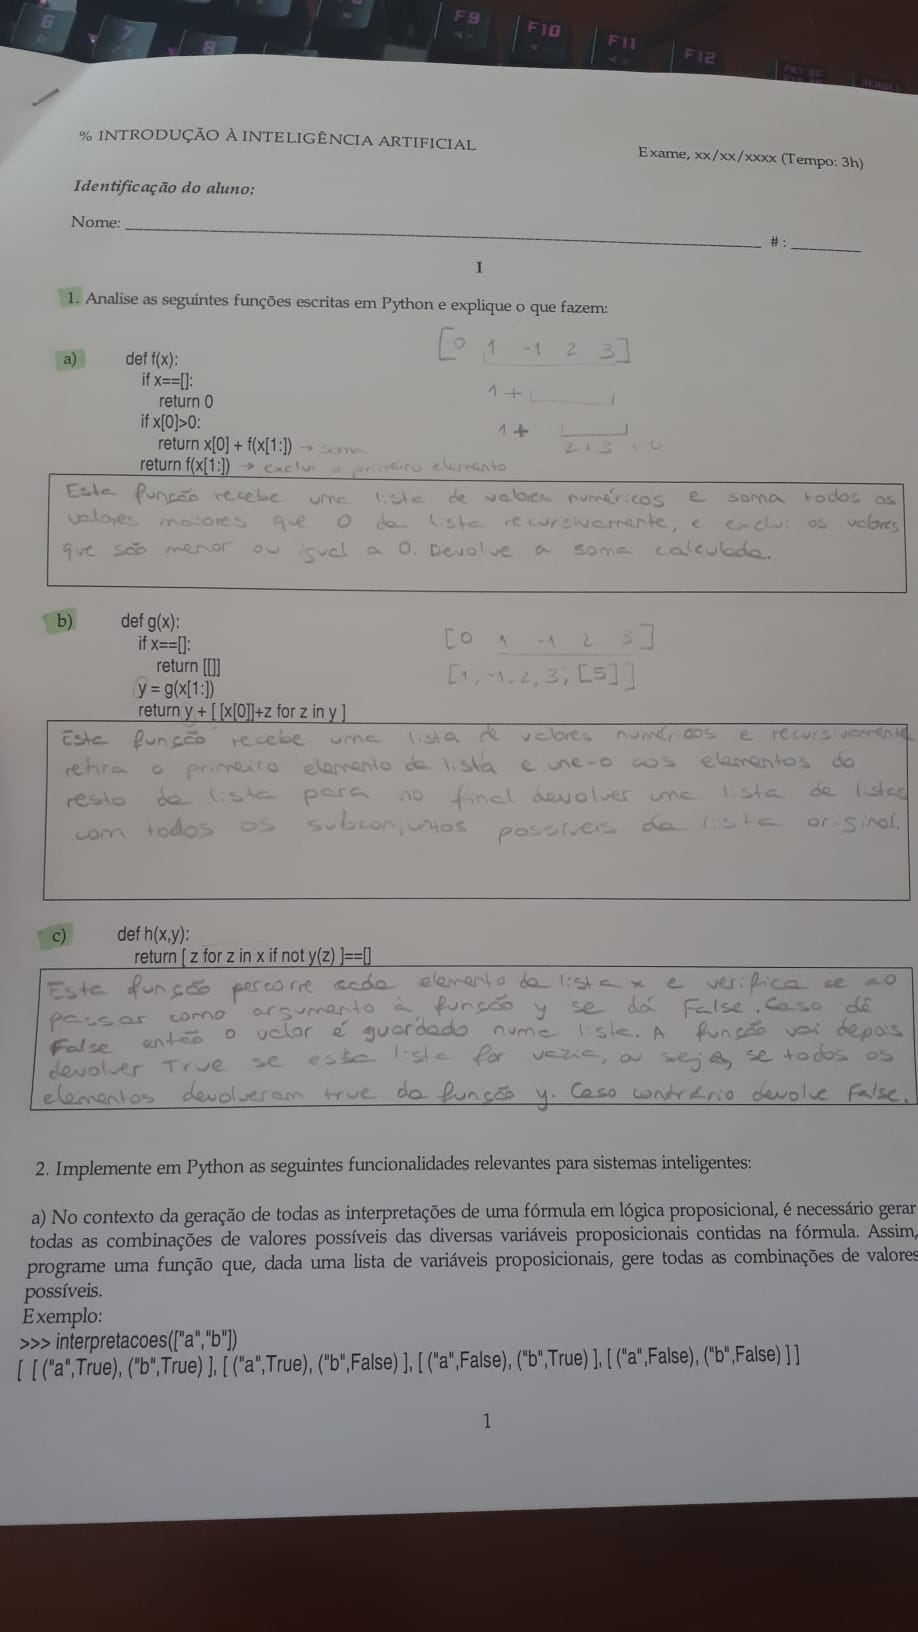 6
7
8
F9
F10
F11
F12
% INTRODUÇÃO À INTELIGÊNCIA ARTIFICIAL
Exame, xx/xx/xxxx (Tempo: 3h)
Identificação do aluno:
Nome: # :
I
1. Analise as seguintes funções escritas em Python e explique o que fazem:
[0 1 -1 2 3]
a) def f(x):
if x==[]:
1 +
return 0
if x[0]>0:
1 +
return x[0] + f(x[1:]) → soma
2 + 3 + 0
return f(x[1:]) → exclui o primeiro elemento
Esta função recebe uma lista de valores numéricos e soma todos os
valores maiores que 0 da lista recursivamente, e exclui os valores
que são menor ou igual a 0. Devolve a soma calculada.
b) def g(x):
[0 1 -1 2 3]
if x==[]:
return [[]]
[1, -1, 2, 3, [5]]
y = g(x[1:])
return y + [ [x[0]]+z for z in y ]
Esta função recebe uma lista de valores numéricos e recursivamente
retira o primeiro elemento da lista e une-o aos elementos do
resto da lista para no final devolver uma lista de listas
com todos os subconjuntos possíveis da lista original.
c) def h(x,y):
return [ z for z in x if not y(z) ]==[]
Esta função percorre cada elemento da lista x e verifica se ao
passar como argumento à função y se dá False. Caso dê
False então o valor é guardado numa lista. A função vai depois
devolver True se esta lista for vazia, ou seja, se todos os
elementos devolveram true da função y. Caso contrário devolve False.
2. Implemente em Python as seguintes funcionalidades relevantes para sistemas inteligentes:
a) No contexto da geração de todas as interpretações de uma fórmula em lógica proposicional, é necessário gerar
todas as combinações de valores possíveis das diversas variáveis proposicionais contidas na fórmula. Assim,
programe uma função que, dada uma lista de variáveis proposicionais, gere todas as combinações de valores
possíveis.
Exemplo:
>>> interpretacoes(["a","b"])
[ [ ("a",True), ("b",True) ], [ ("a",True), ("b",False) ], [ ("a",False), ("b",True) ], [ ("a",False), ("b",False) ] ]
1